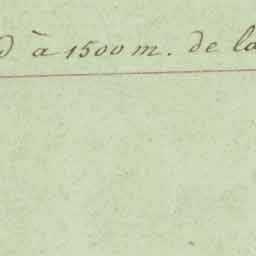 d à 1500 m. de la